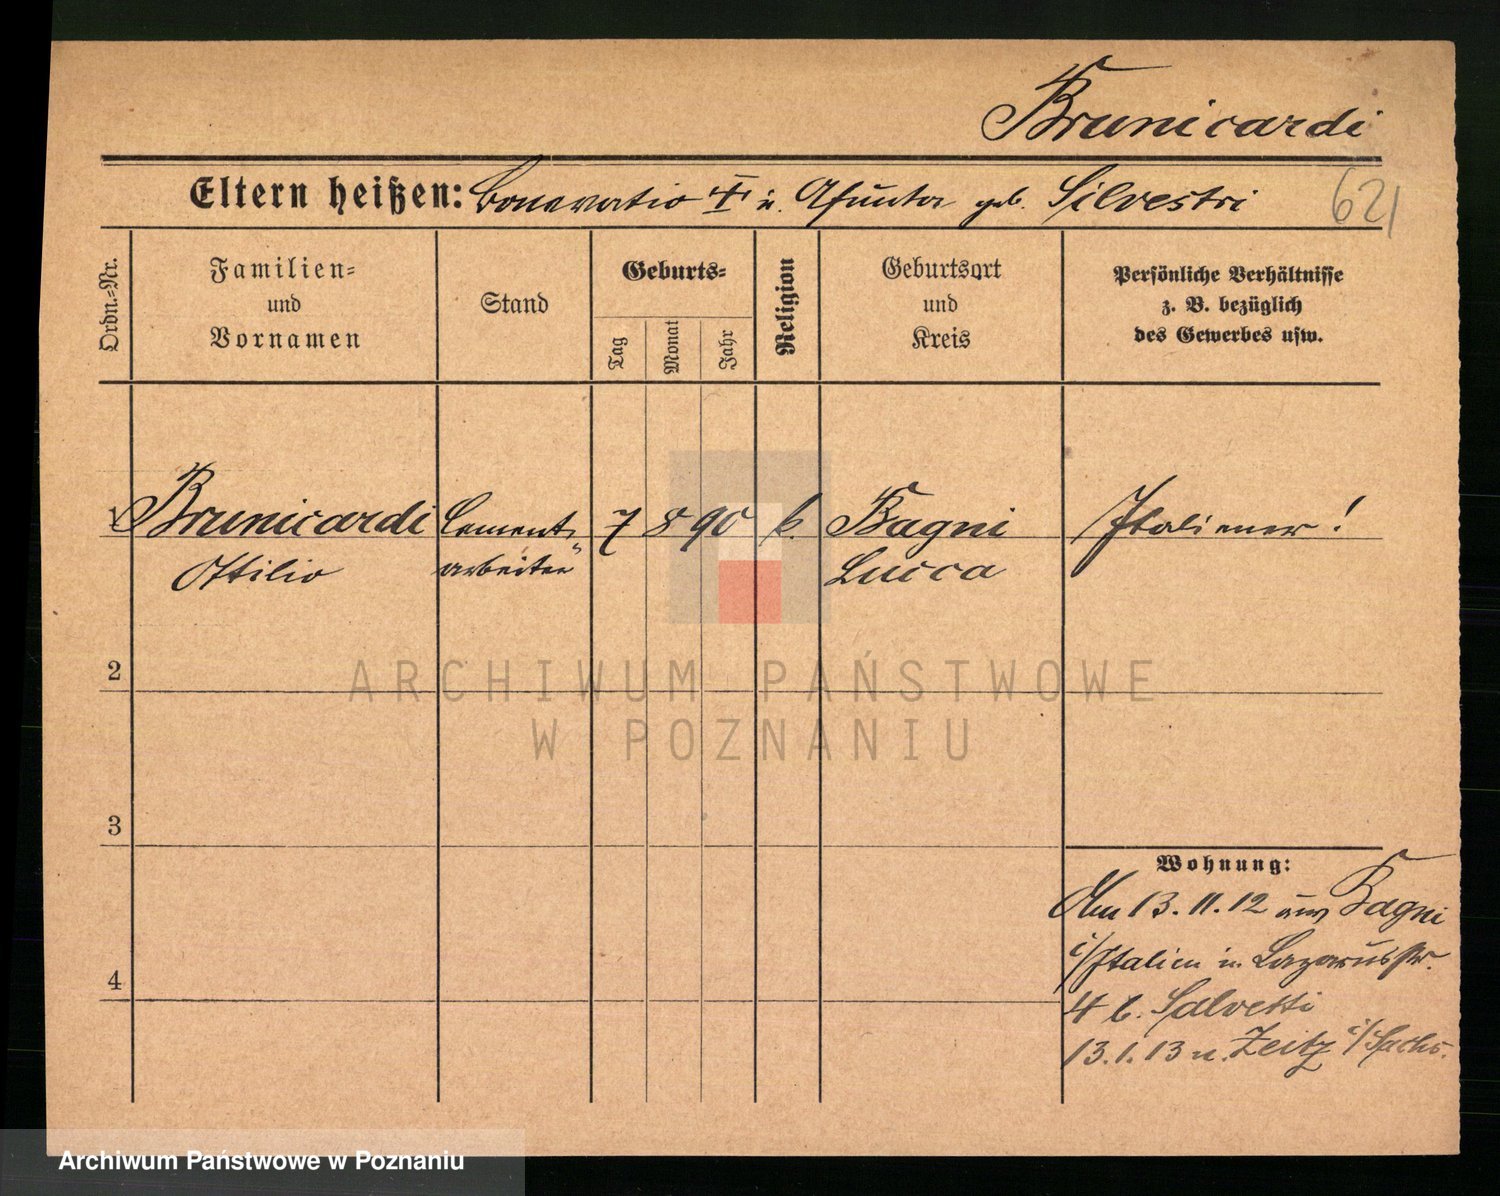 Brunicardi
Eltern heißen: Bonavatio † u. Asunta geb. Silvestri 621
Ordn.=Nr.
Familien=
und
Vornamen
Stand
Geburts=
Tag
Monat
Jahr
Religion
Geburtsort
und
Kreis
Persönliche Verhältnisse
z. B. bezüglich
des Gewerbes usw.
1 Brunicardi Cement= 7 8 90 k. Bagni Italiener!
Ottilio arbeiter Lucca
2
3
4
Wohnung:
Am 13.11.12 aus Bagni
i/Italien in Lazarusstr.
4 b. Salvetti
13.1.13 n. Zeitz i/Sachs.
ARCHIWUM PAŃSTWOWE
W POZNANIU
Archiwum Państwowe w Poznaniu